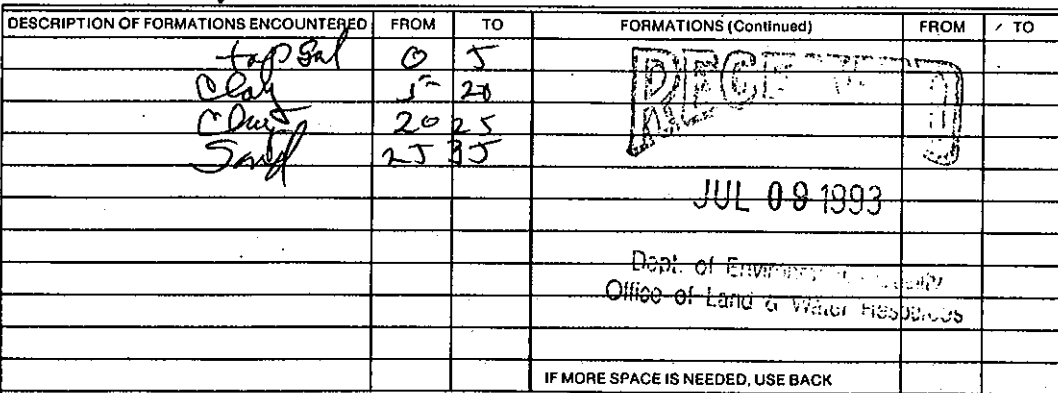 DESCRIPTION OF FORMATIONS ENCOUNTERED FROM TO FORMATIONS (Continued) FROM TO
top Sol 0 5
Clay 5 20
Clay 20 25
Sand 25 35
RECEIVED
JUL 09 1993
Dept. of Environmental Quality
Office of Land & Water Resources
IF MORE SPACE IS NEEDED, USE BACK